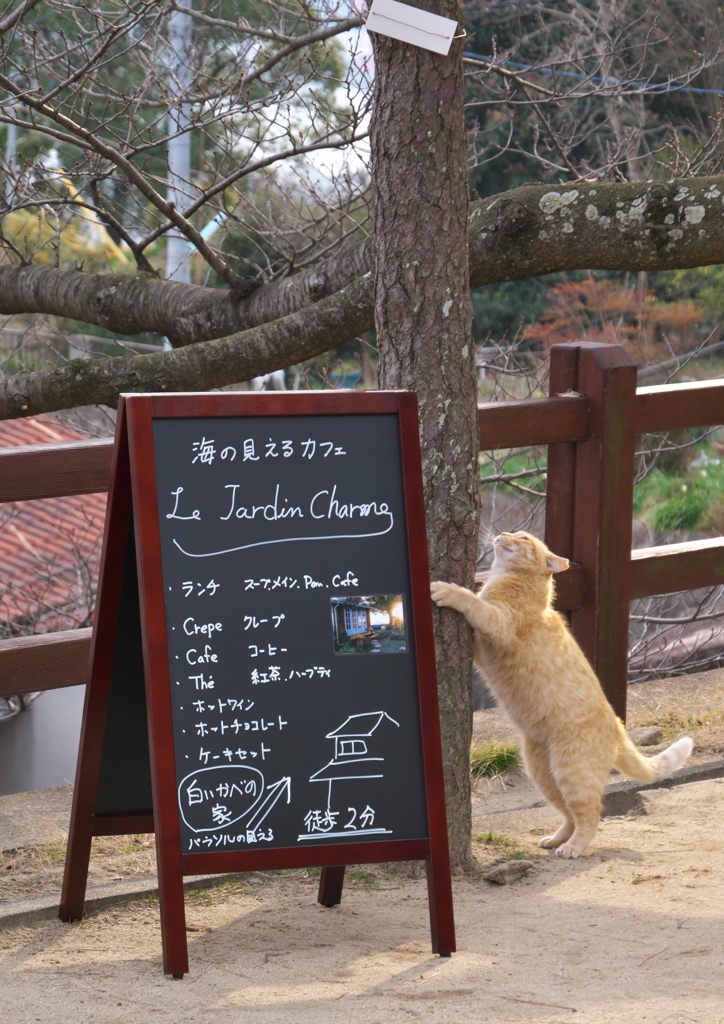 海の見えるカフェ
Le Jardin Charme
・ランチ スープ.メイン.Pan.Cafe
・Crepe クレープ
・Cafe コーヒー
・Thé 紅茶.ハーブティ
・ホットワイン
・ホットチョコレート
・ケーキセット
白いかべの
家
パラソルの見える
徒歩2分